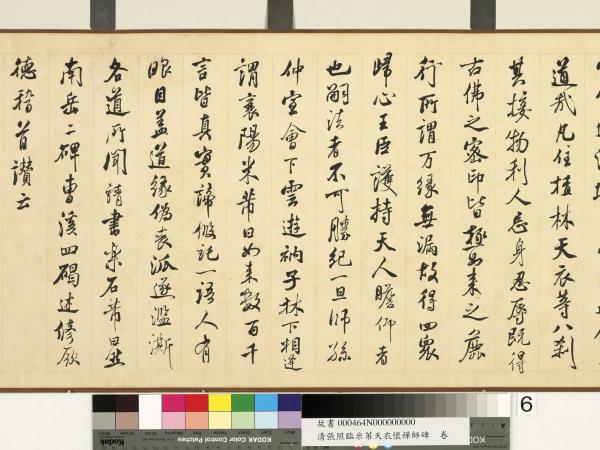 道哉凡住林天衣等八剎
其接物利人忘身忍辱既得
古佛之密印皆極來之
行所謂万緣無漏故得四衆
歸心王臣護持天人瞻仰者
也嗣法者不可勝紀一旦師孫
仲宣會下雲遊衲子林下相逢
謂襄陽米芾曰如來數百千
言皆真實諦假託一語人有
眼目蓋道緣偽喪派遂濫漸
各道所聞請書樂石芾曰
南岳二碑曹溪四碣述修厥
德稽首讚云
6
Kodak
KODAK Color Control Patches
故書 000464N000000000
清張照臨米芾天衣懷禪師碑 卷